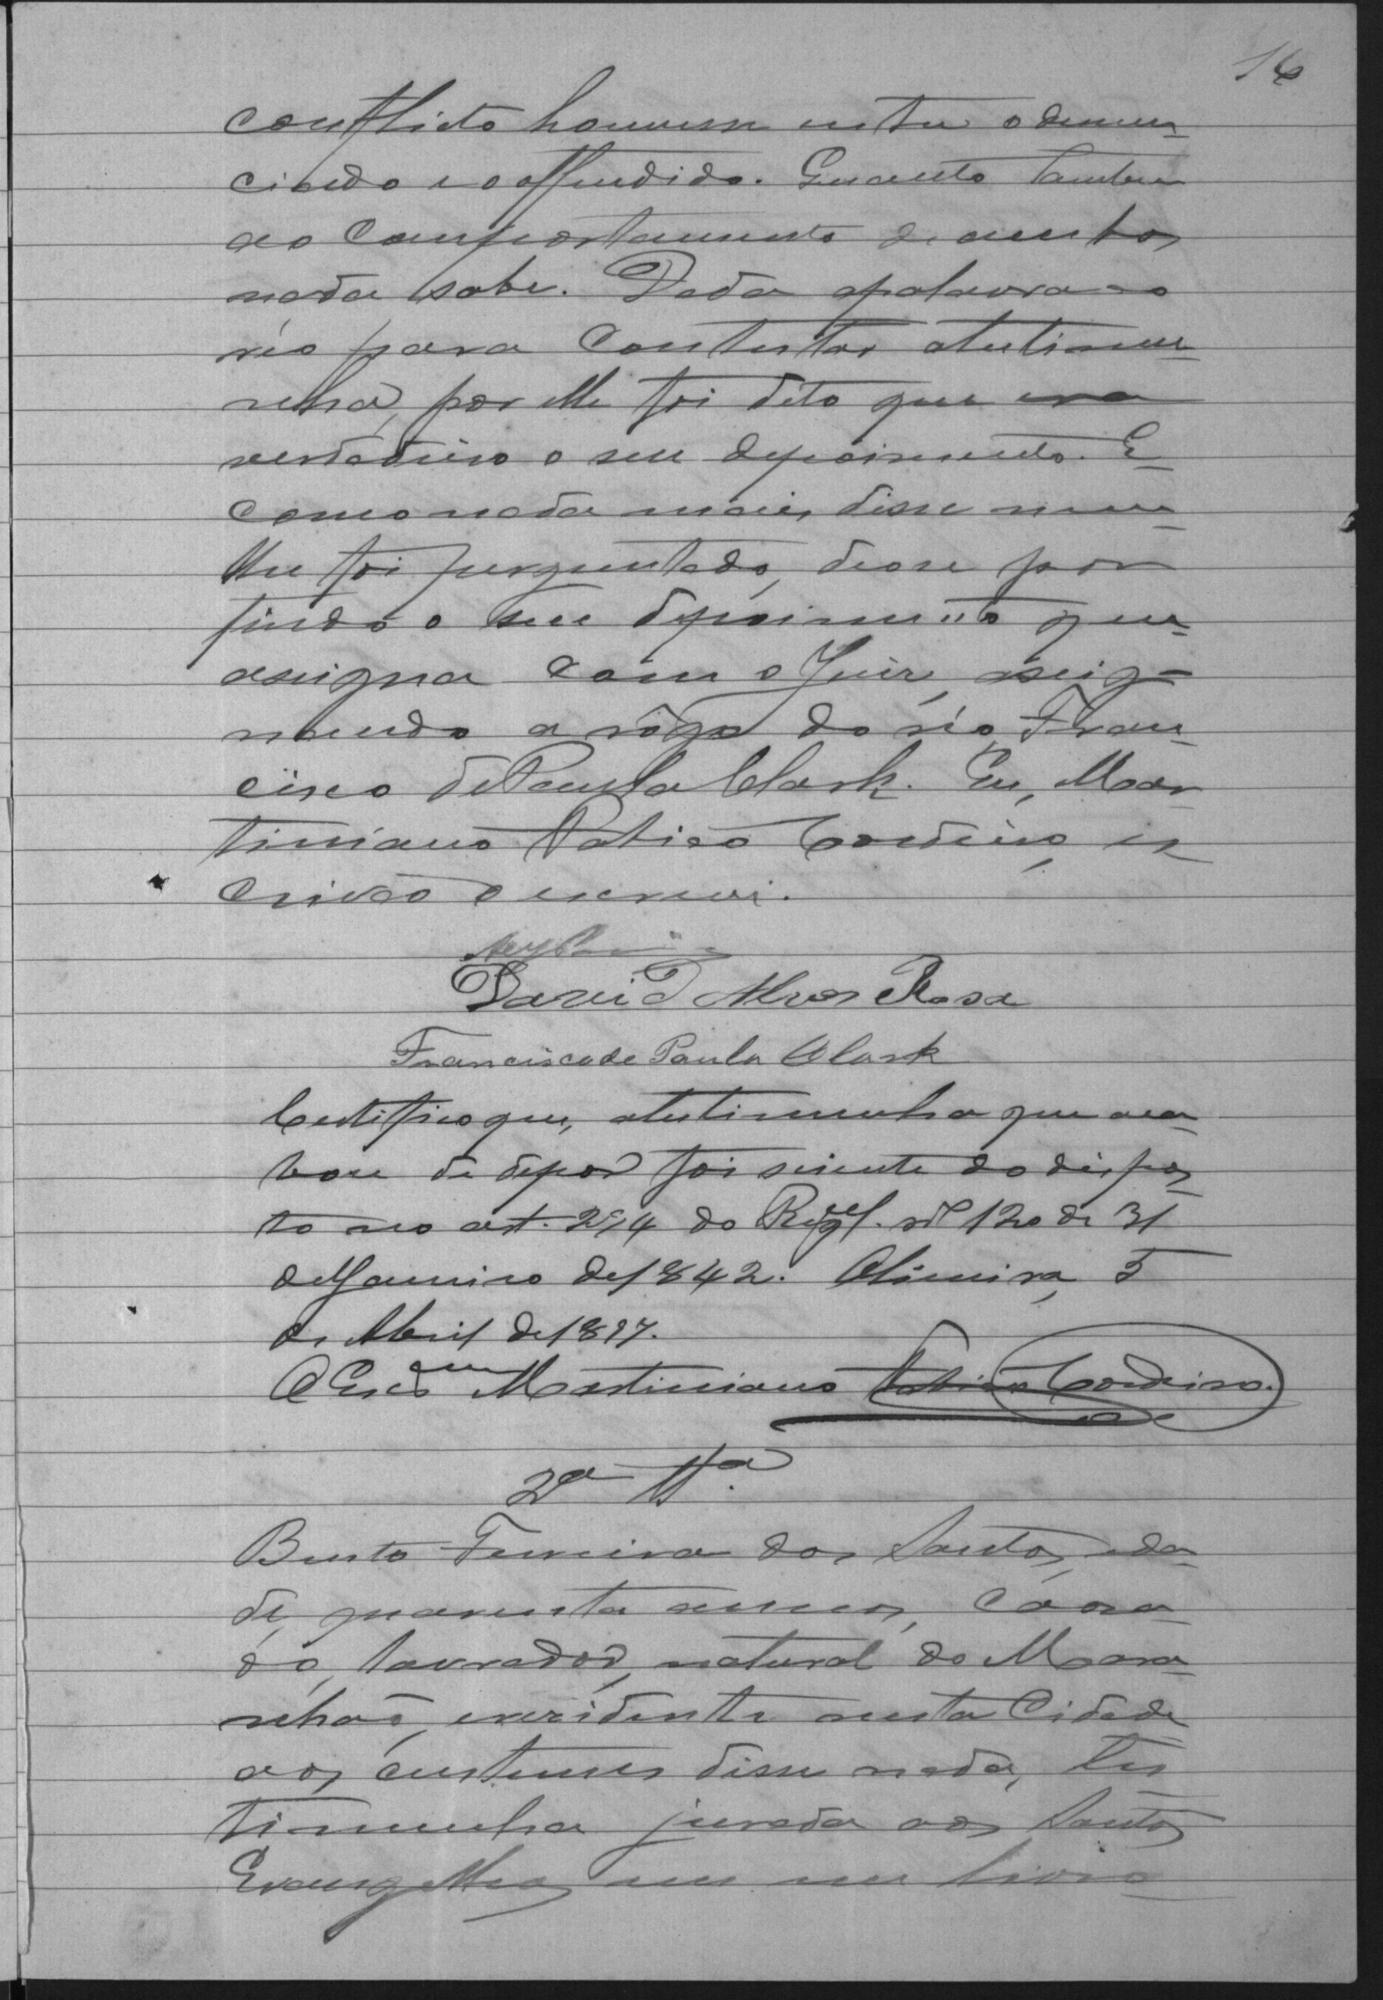 16
conflicto houvesse entre o denun-
ciado e o offendido. Quanto tambem
ao comportamento de ambos
nada sabe. Dada a palavra ao
réo para contestar a testimu-
nha, por elle foi dito que era
verdadeiro o seu depoimento. E
como nada mais disse nem
lhe foi perguntado, deo-se por
findo o seu depoimento que
assigna com o Juiz, assig-
nando a rôgo do réo, Fran-
cisco de Paula Clark. Eu, Mar-
timiano Cordeiro, es
crivão o escrevi.
David Alves Rosa
Francisco de Paula Clark
Certifico que, a testimunha que aca-
bou de depor foi sciente do dispos
to no art. 294 do Regul. nº 120 de 31
de Janeiro de 1842. 5
de Abril de 1897.
O Escrivam Martimiano Cordeiro.
2ª Tª.
Bento Ferreira dos Santos, ida-
de, quarenta annos, casa-
do, lavrador, natural do Mara-
nhão, e rezidente nesta Cidade
aos custumes disse nada, tes
timunha jurada aos Santos
Evangelhos em um livro